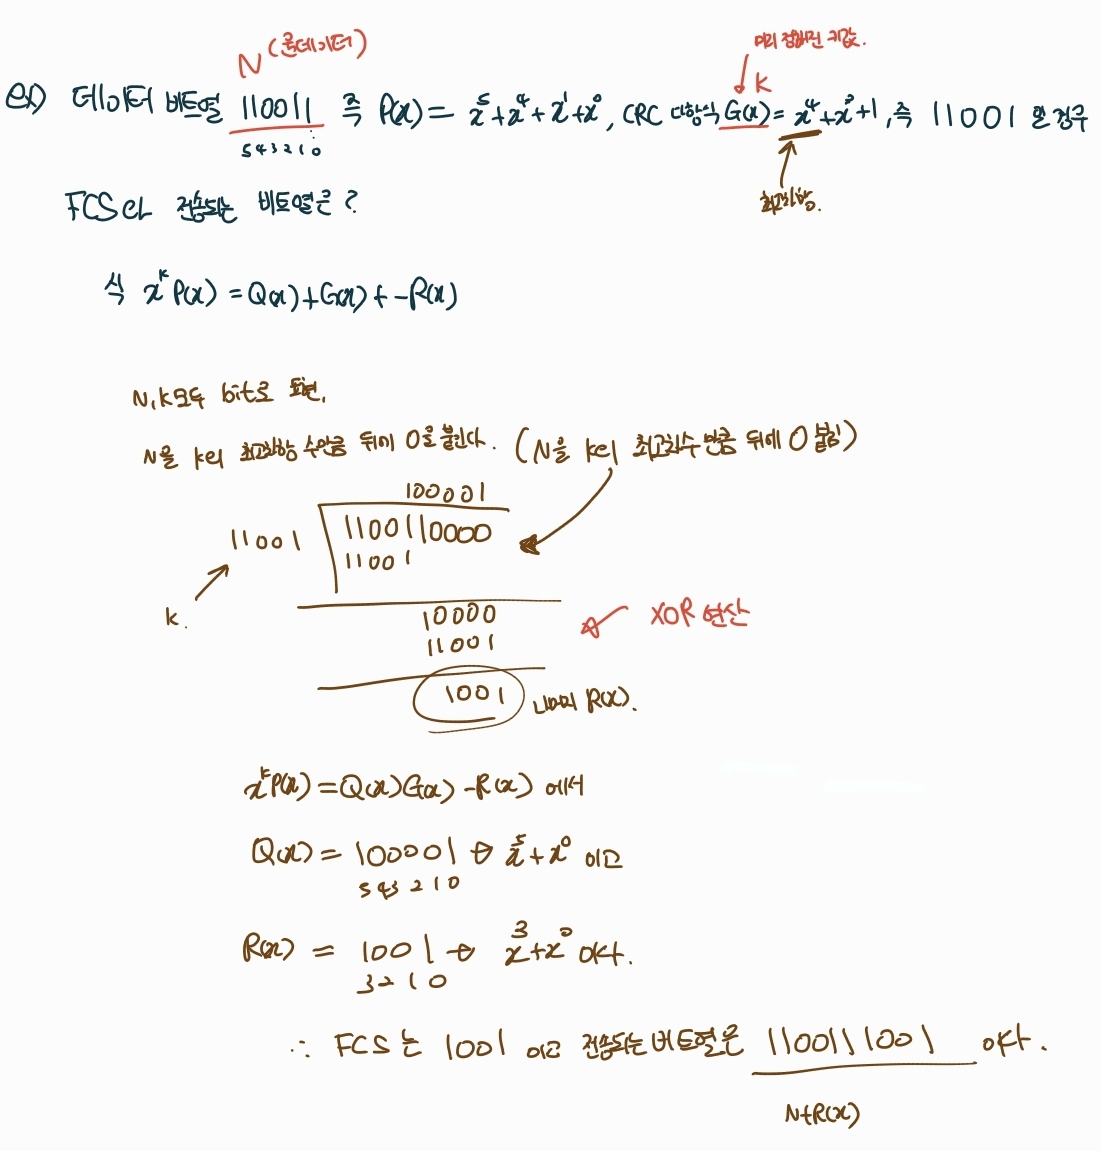 N (본데이터)
미리 정해진 키값.
K
ex) 데이터 비트열 110011 즉 P(x) = x^5 + x^4 + x^1 + x^0, CRC 다항식 G(x) = x^4 + x^3 + 1, 즉 11001 일 경우
5 4 3 2 1 0
최고차항.
FCS와 전송되는 비트열은?
식 x^k P(x) = Q(x) + G(x) + -R(x)
N, k모두 bit로 표현.
N을 k의 최고차항 수만큼 뒤에 0을 붙인다. (N을 k의 최고차수만큼 뒤에 0 붙임)
100001
11001 1100110000
11001
k.
10000
XOR 연산
11001
1001 나머지 R(x).
x^k P(x) = Q(x)G(x) - R(x) 에서
Q(x) = 100001 → x^5 + x^0 이고
5 4 3 2 1 0
R(x) = 1001 → x^3 + x^0 이다.
3 2 1 0
∴ FCS는 1001 이고 전송되는 비트열은 1100111001 이다.
N+R(x)